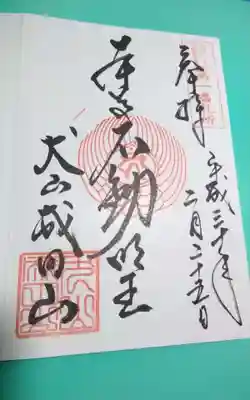 奉拝
平成三十年
二月二十五日
本尊不動明王
犬山成田山